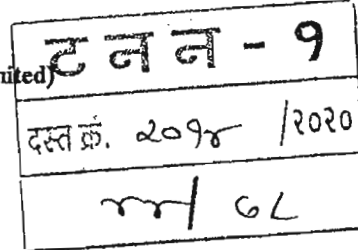 nited)
ट न न - १
दस्त क्रं. २०१४ /२०२०
४४/ ७८